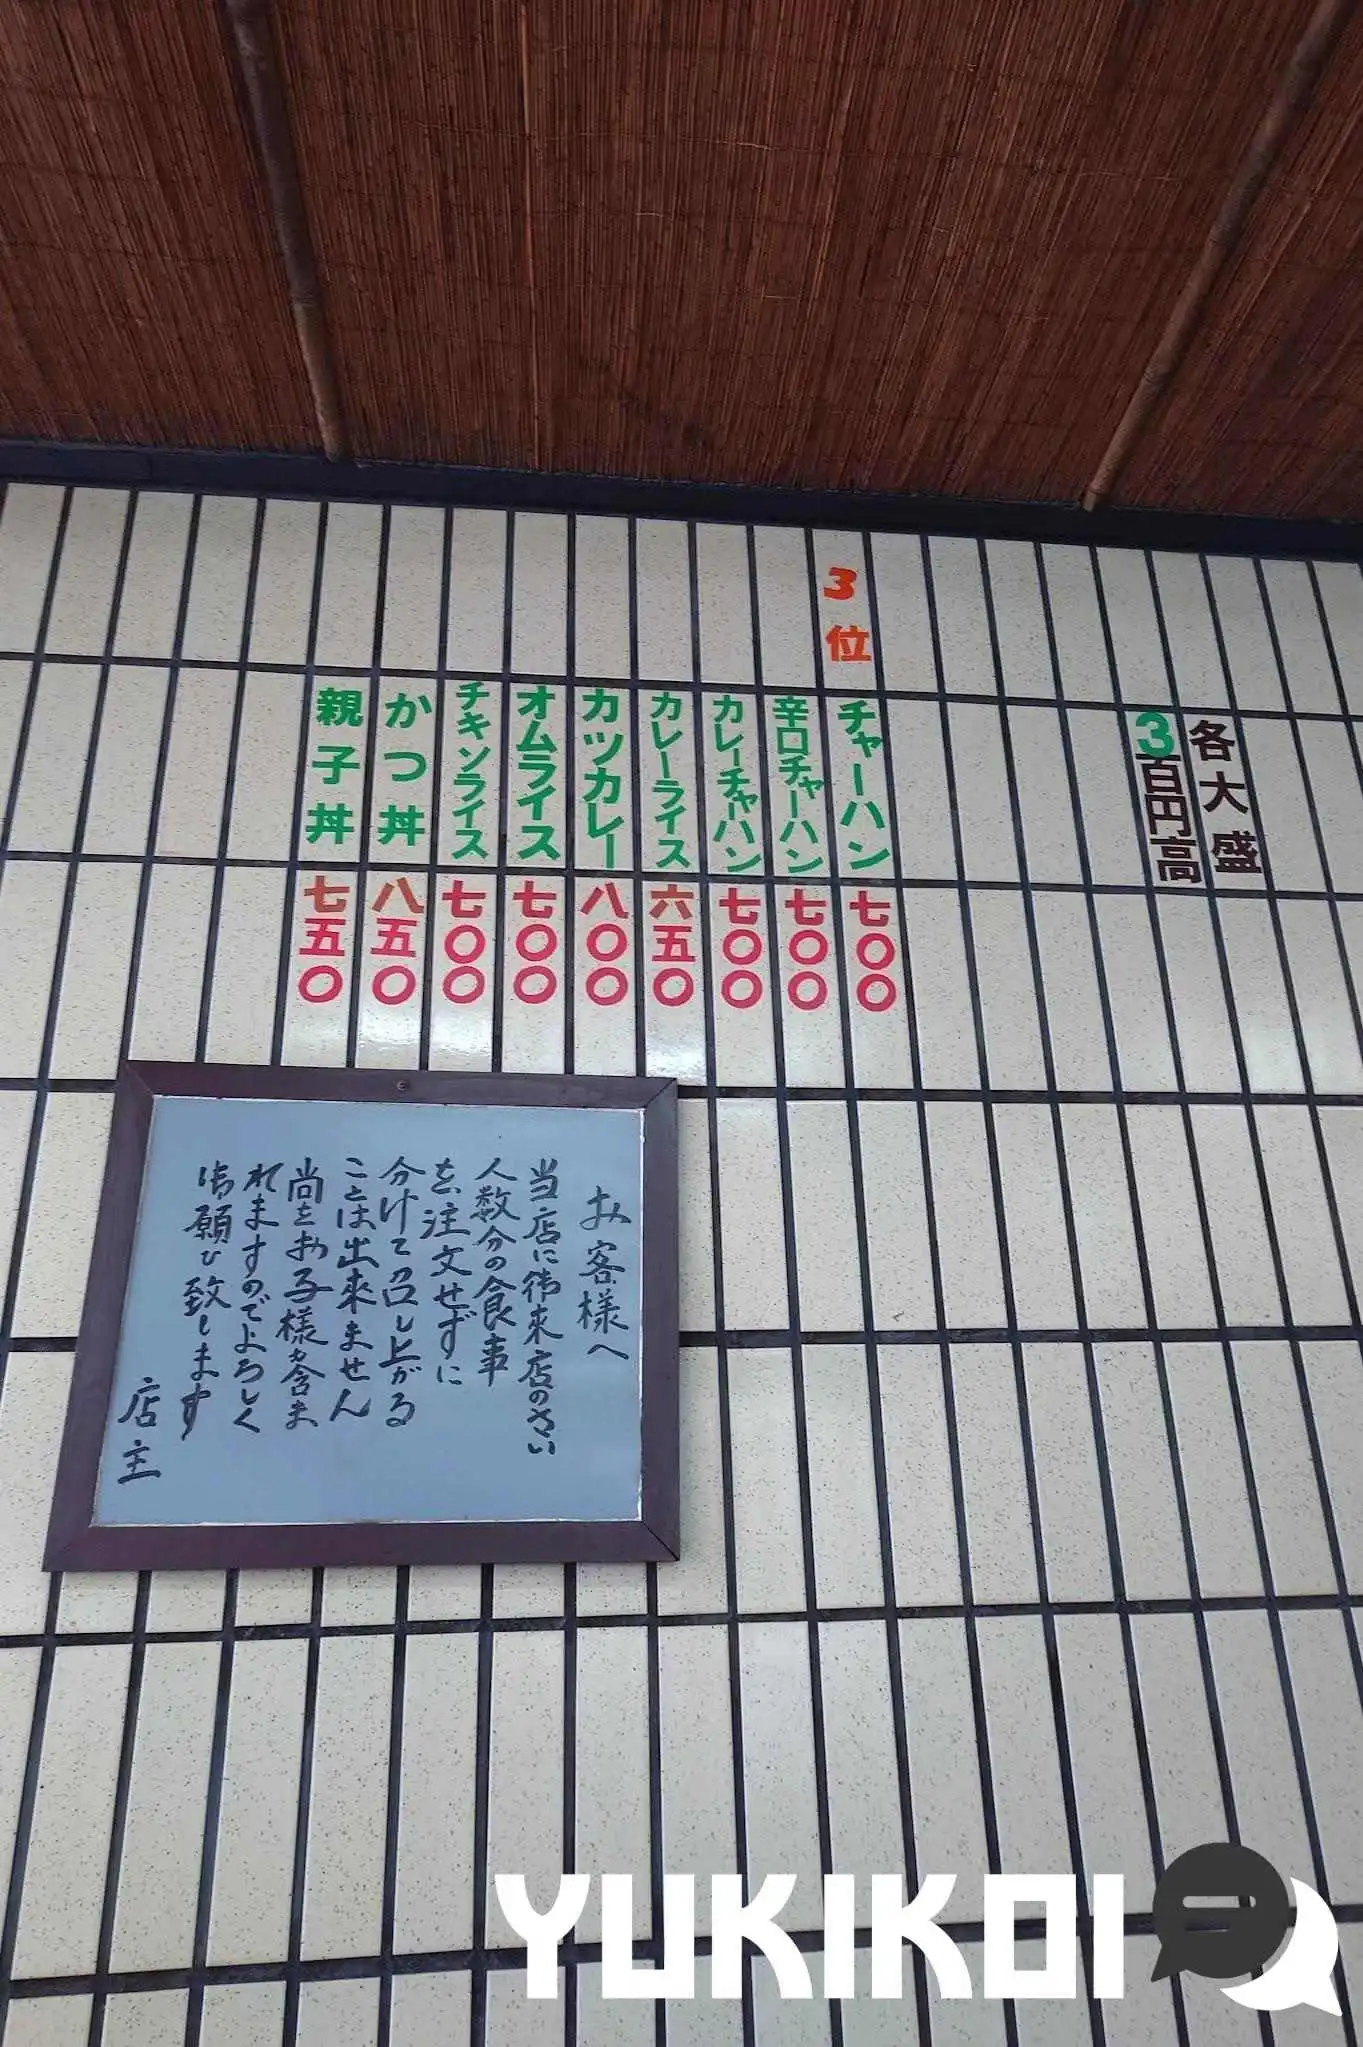 各大盛
3百円高
3位
チャーハン 七〇〇
辛口チャーハン 七〇〇
カレーチャハン 七〇〇
カレーライス 六五〇
カツカレー 八〇〇
オムライス 七〇〇
チキンライス 七〇〇
かつ丼 八五〇
親子丼 七五〇
お客様へ
当店に御来店のさい
人数分の食事
を注文せずに
分けて召し上がる
ことは出来ません
尚をお子様も含ま
れますのでよろしく
御願ひ致します
店主
YUKIKOI